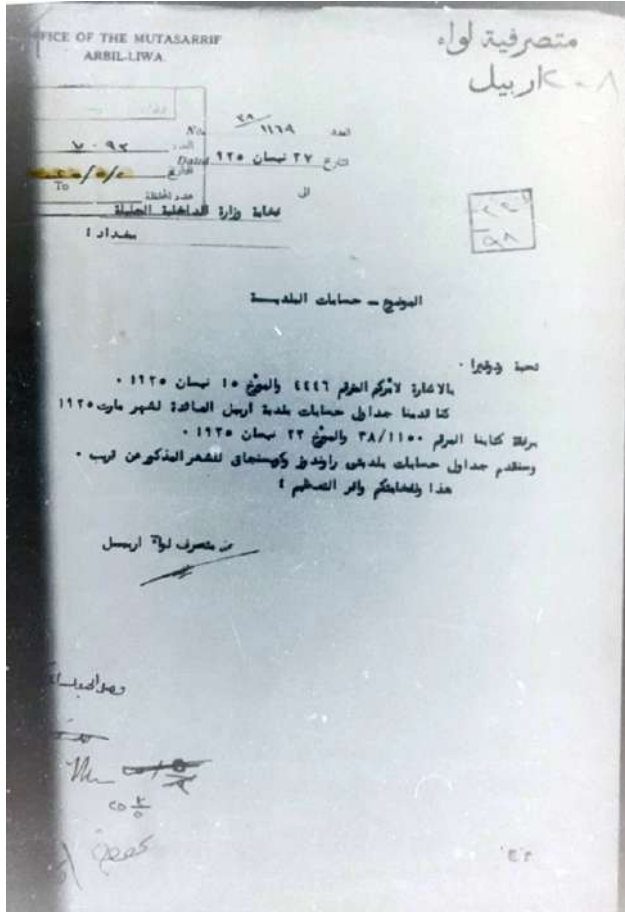 OFFICE OF THE MUTASARRIF
ARBIL-LIWA.
متصرفية لواء
اربيل
No. ٣٨/١١٦٩ العدد
Dated ٢٧ نيسان ٩٢٥ تاريخ
العدد ٧٠٩٢
To الى
فخامة وزارة الداخلية الجليلة
بغداد ؛
الموضوع – حسابات البلديـة
تحية وتوقيرا ٠
بالاشارة لامركم المرقم ٤٤٤٦ والمؤرخ ١٥ نيسان ١٩٢٥ ٠
كنا قدمنا جداول حسابات بلدية اربيل العائدة لشهر مارت ١٩٢٥
برفقة كتابنا المرقم ٣٨/١١٥٠ والمؤرخ ٢٣ نيسان ١٩٢٥ ٠
وسنقدم جداول حسابات بلديتي راوندوز وكويسنجاق للشهر المذكور عن قريب ٠
هذا ولفخامتكم وافر التعظيم ؛
متصرف لواء اربيل